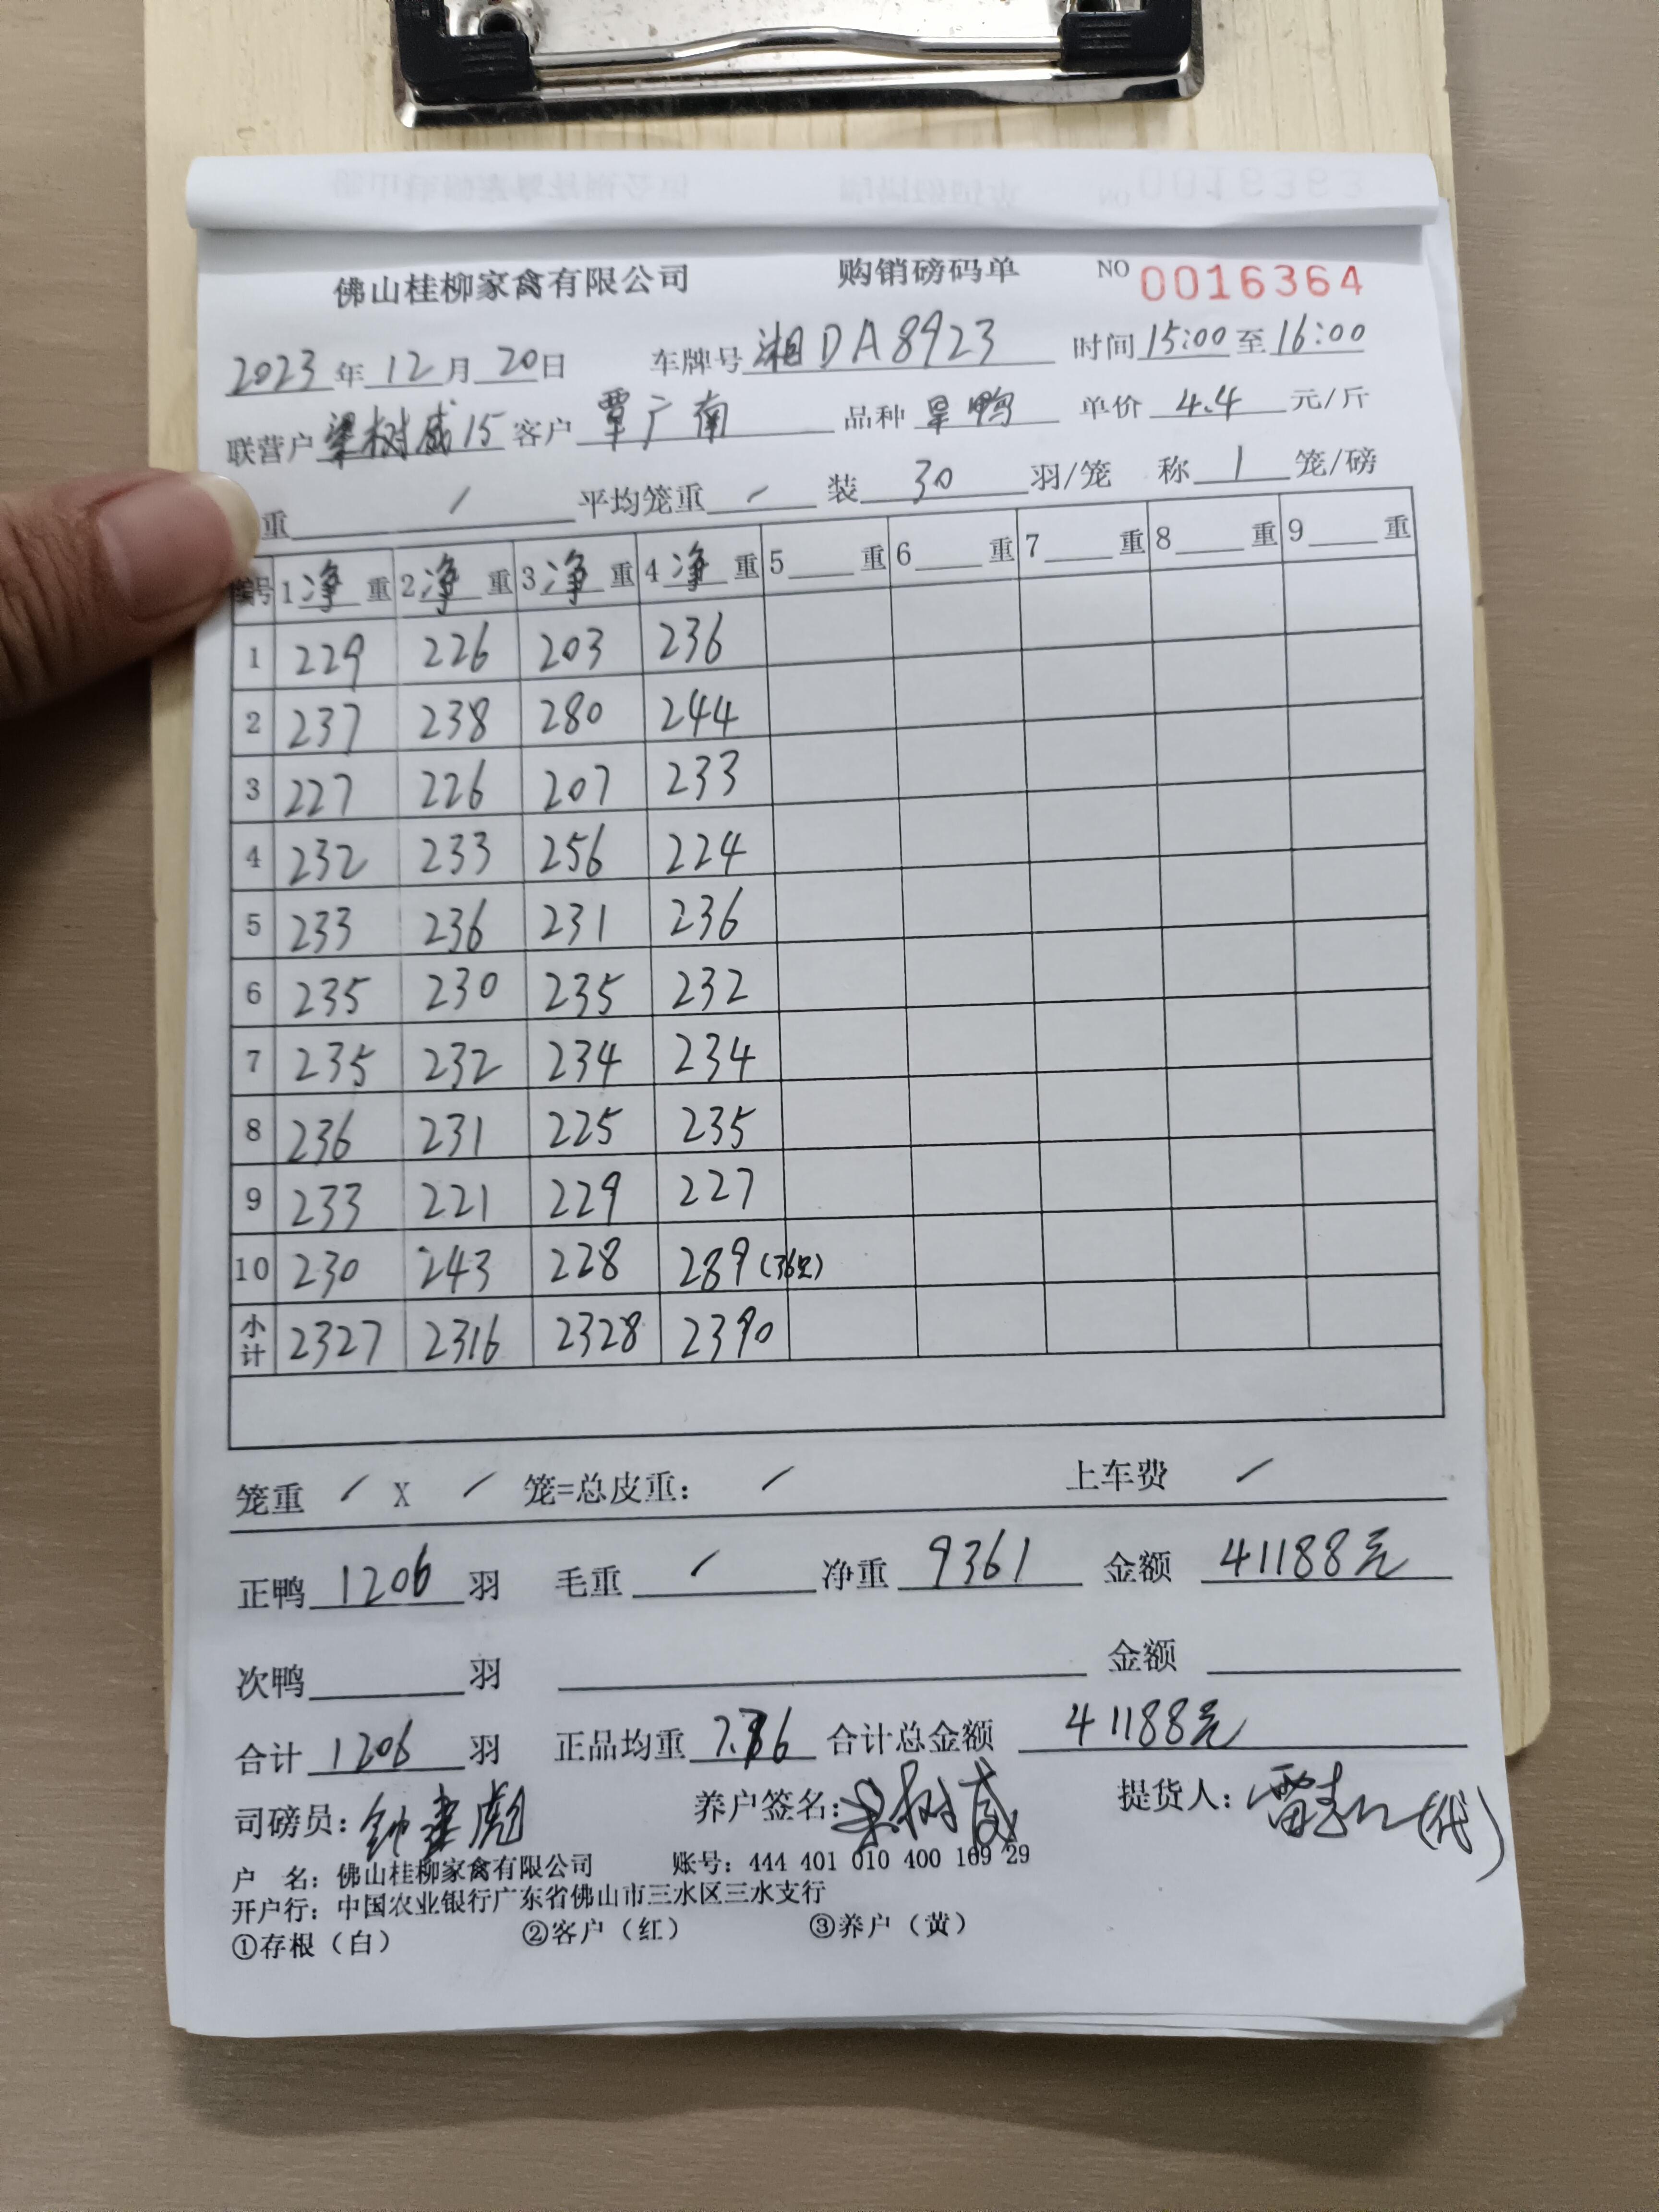 佛山桂柳家禽有限公司 购销磅码单 NO 0016364
2023年12月20日 车牌号 湘DA8923 时间 15:00 至 16:00
联营户 梁树威15 客户 覃广南 品种 旱鸭 单价 4.4 元/斤
重 / 平均笼重 / 装 30 羽/笼 称 1 笼/磅
编号 1净重 2净重 3净重 4净重 5 重 6 重 7 重 8 重 9 重
1 229 226 203 236
2 237 238 280 244
3 227 226 207 233
4 232 233 256 224
5 233 236 231 236
6 235 230 235 232
7 235 232 234 234
8 236 231 225 235
9 233 221 229 227
10 230 243 228 289(36只)
小计 2327 2316 2328 2390
笼重 / X / 笼=总皮重: / 上车费 /
正鸭 1206 羽 毛重 / 净重 9361 金额 41188元
次鸭 羽 金额
合计 1206 羽 正品均重 7.76 合计总金额 41188元
司磅员: 钟建彪 养户签名: 梁树威 提货人: 雷 (代)
户 名: 佛山桂柳家禽有限公司 账号: 444 401 010 400 169 29
开户行: 中国农业银行广东省佛山市三水区三水支行
①存根(白) ②客户(红) ③养户(黄)